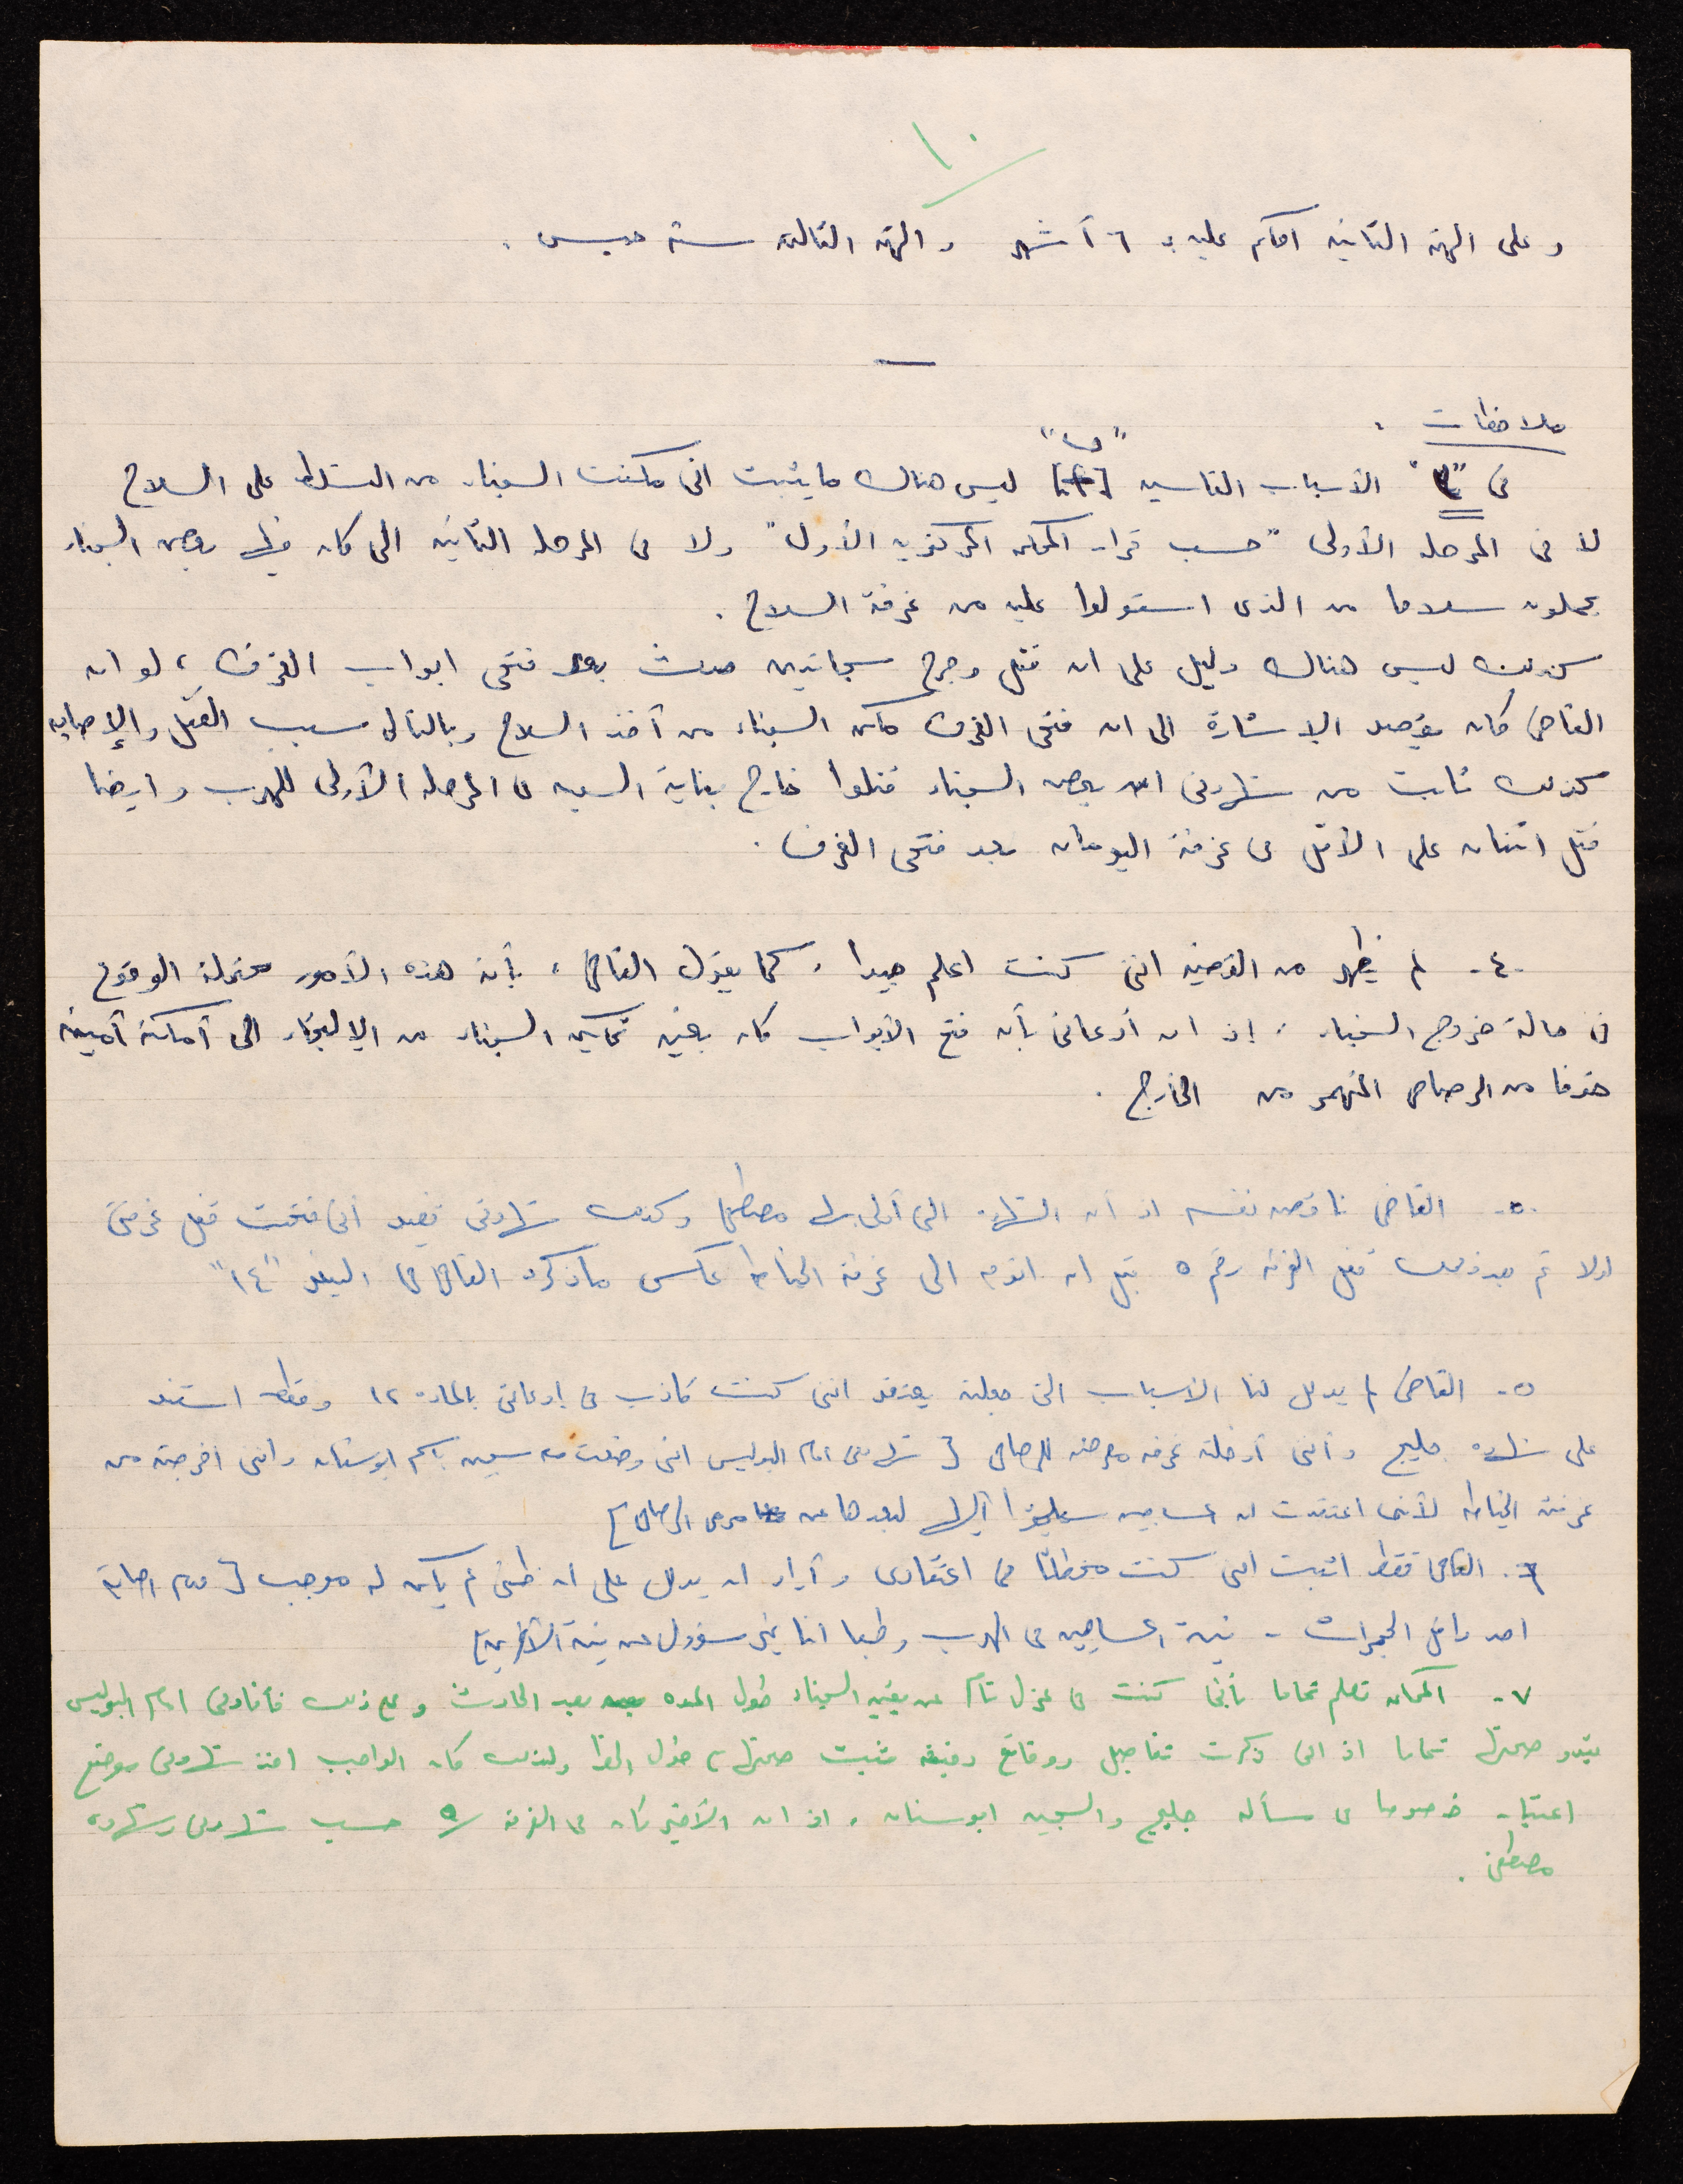 ١٠
وعلى التهمة الثانية احكم عليه بـ ٦ أشهر والتهمة الثالثة سنة حبس .
ملاحظات :
في "٤" الأسباب القاسيه "ب" ليس هناك ما يثبت اني مكنت السجناء من التسلط على السلاح
لا في المرحلة الأولى "حسب قرار المحكمه المركزيه الأول" ولا في المرحلة الثانيه التي كان فيها بعض السجناء
يحملون سلاحا من الذي استولوا عليه من غرفة السلاح .
كذلك ليس هناك دليل على ان قتل وجرح سجانين حدث بعد فتحي ابواب الغرف ، لو ان
القاضي كان يقصد الإشارة الى ان فتحي الغرف مكن السجناء من أخذ السلاح وبالتالي سبب القتل والإصابه
كذلك ثابت من شهادتي ان بعض السجناء قتلوا خارج بناية السجن في المرحلة الأولى للهرب وايضا
قتل اثنان على الأقل في غرفة اليومان بعد فتحي الغرف .
٤- لم يظهر من القضيه انني كنت اعلم جيدا ، كما يقول القاضي ، بأن هذه الأمور محتملة الوقوع
في حالة خروج السجناء ، إذ ان أدعائي بأن فتح الأبواب كان بغية تمكين السجناء من الإلتجاء الى أماكنة أمينه
خوفا من الرصاص المنهمر من الخارج .
٥- القاضي ناقض نفسه اذ أن الشهادة التي أدلى بها مصطفى وكذلك شهادتي تفيد أني فتحت قفل غرفتي
اولا ثم بعد ذلك قفل الغرفه رقم ٥ قبل ان اتوجه الى غرفة الخياطه عكس ما ذكره القاضي في البند "١٤"
٥- القاضي لم يدلل لنا الأسباب التي جعلته يعتقد انني كنت كاذب في إدعائي بالماده ١٢ وفقط استند
على شهادة جليح وأنني أدخلته غرفه معرضه للرصاص [ شهادتي امام البوليس اني وضعت فيه سجين باسم ابو سنان وانني أخرجته من
غرفة الخياطه لأني اعتقدت ان المساجين سيلجئوا إليها لبعدها عن مرمى الرصاص ]
٦- القاضي فقط اثبت انني كنت مخطئا في اعتقادي وأراد ان يدلل على ان ظني لم يكن له موجب [ عدم اصابة
احد داخل الحجرات - نية المساجين في الهرب وطبعا انا غير مسؤول عن نية الآخرين ]
٧- المحكمه تعلم تماما بأني كنت في عزل تام عن بقية السجناء طول المده بعد الحادث ومع ذلك فأفادتي امام البوليس
تبدو صحتها تماما اذ اني ذكرت تفاصيل ووقائع دقيقه ثبت صحتها ولذلك كان الواجب اخذ شهادتي بوضع
اعتبار خصوصا في مسألة جليح والسجين ابو سنان ، اذ ان الأخير كان في الغرفة ٥ حسب شهادتي وشهادة
مصطفى .